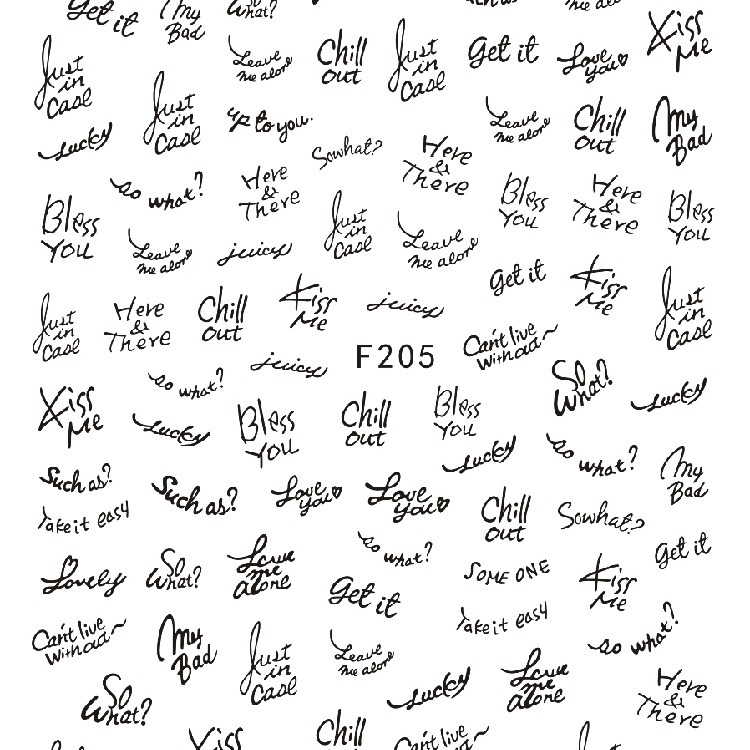 Get it
My
Bad
So
What?
such as?
Leave
me alone
Just
in
Case
Leave
me alone
Chill
out
Just
in
Case
Get it
Love
you
Kiss
Me
Lucky
Just
in
Case
up to you.
So what?
Here
&
There
Leave
me alone
Chill
out
My
Bad
Bless
YOU
So what?
Here
&
There
Just
in
Case
Bless
YOU
Here
&
There
Bless
YOU
Leave
me alone
juicy
Leave
me alone
Get it
Kiss
Me
Just
in
Case
Just
in
Case
Here
&
There
Chill
out
Kiss
Me
juicy
F205
Can't live
without~
juicy
So what?
So
What?
Lucky
Kiss
Me
Lucky
Bless
YOU
Chill
out
Bless
YOU
Lucky
So what?
My
Bad
Such as?
Take it easy
Such as?
Love
you
Love
you
Chill
out
So what?
Get it
Lovely
So
What?
Leave
me
alone
So what?
Get it
SOME ONE
Kiss
Me
Take it easy
So what?
Can't live
without~
My
Bad
Just
in
Case
Leave
me alone
Lucky
Leave
me
alone
Here
&
There
So
What?
Kiss
Chill
out
Can't live
without~